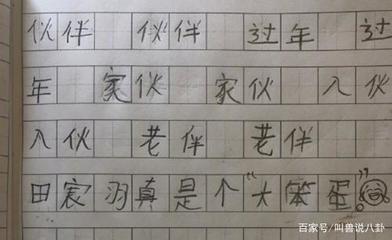 伙伴 伙伴 过年 过
年 家伙 家伙 入伙
入伙 老伴 老伴
田宸羽真是个"大笨蛋"
百家号/叫兽说八卦